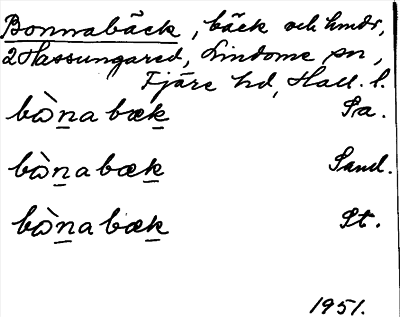 Bonnabäck, bäck och hmdr,
2 Hassungared, Lindome sn,
Fjäre hd, Hall. l.
bònabæk Pa.
bònabæk Sand.
bònabæk St.
1951.